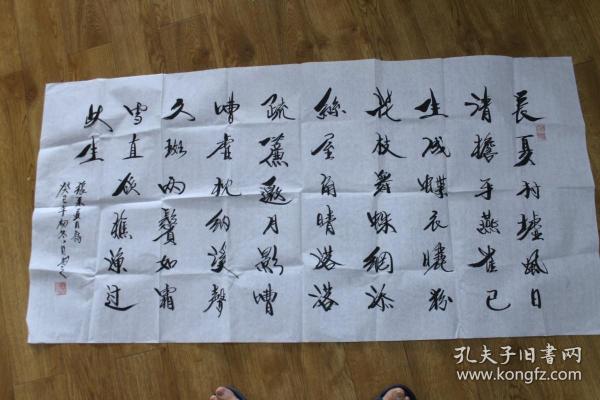 長夏村墟風日
清檐牙燕雀已
生成蝶衣曬粉
花枝舞蛛網添
絲屋角晴落落
疏簾邀月影嘈
嘈虛枕納溪聲
久斑兩鬢如霜
雪直欲樵漁過
此生
癸巳年初
孔夫子旧書网
www.kongfz.com